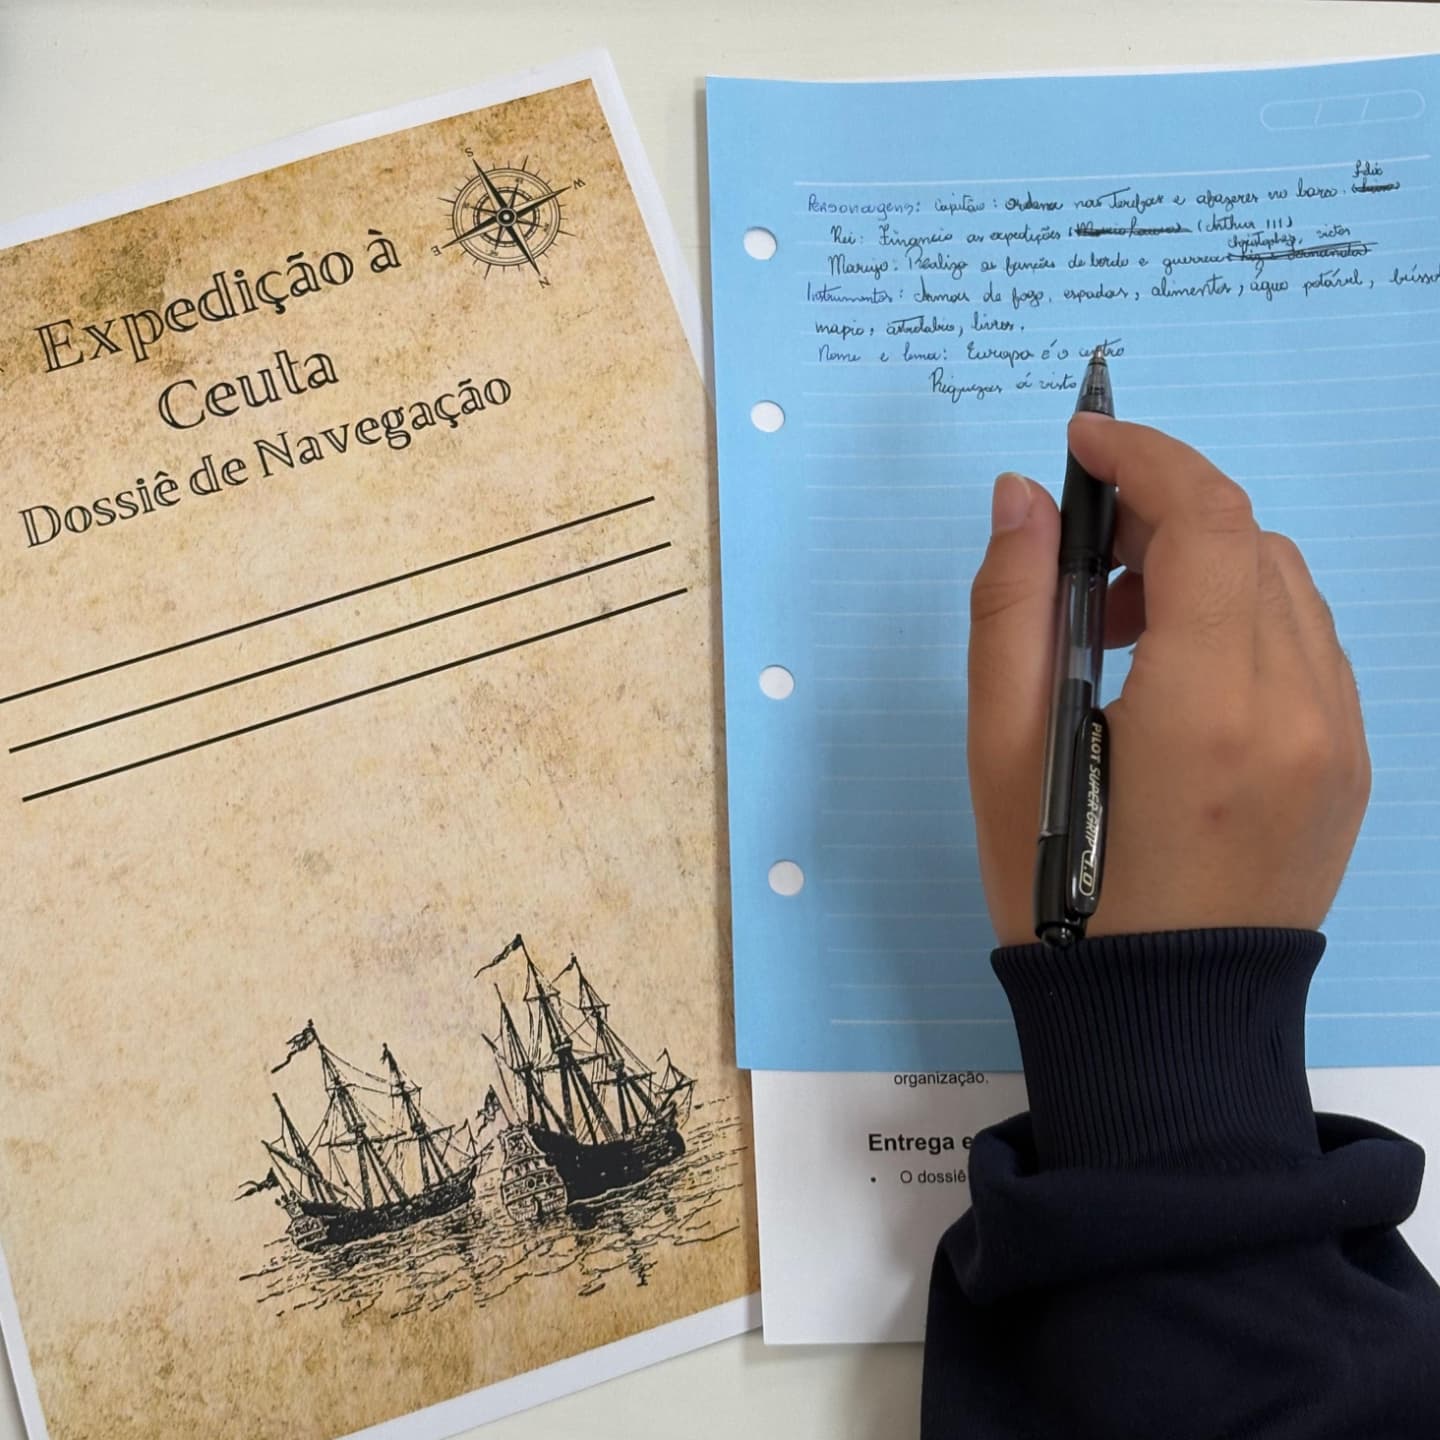 Expedição à
Ceuta
Dossiê de Navegação
S
W
E
N
Personagens: Capitão: ordena nas Tarefas e afazeres no barco.
Rei: Financia as expedições (Arthur III)
christopher, victor
Marujo: Realiza as funções de bordo e guerrea
Instrumentos: Armas de fogo, espadas, alimentos, água potável,
mapio, astrolabio, livros.
Nome e lema: Europa é o centro
Riquezas á vista
PILOT SUPER GRIP 1.0
organização.
Entrega e
• O dossiê